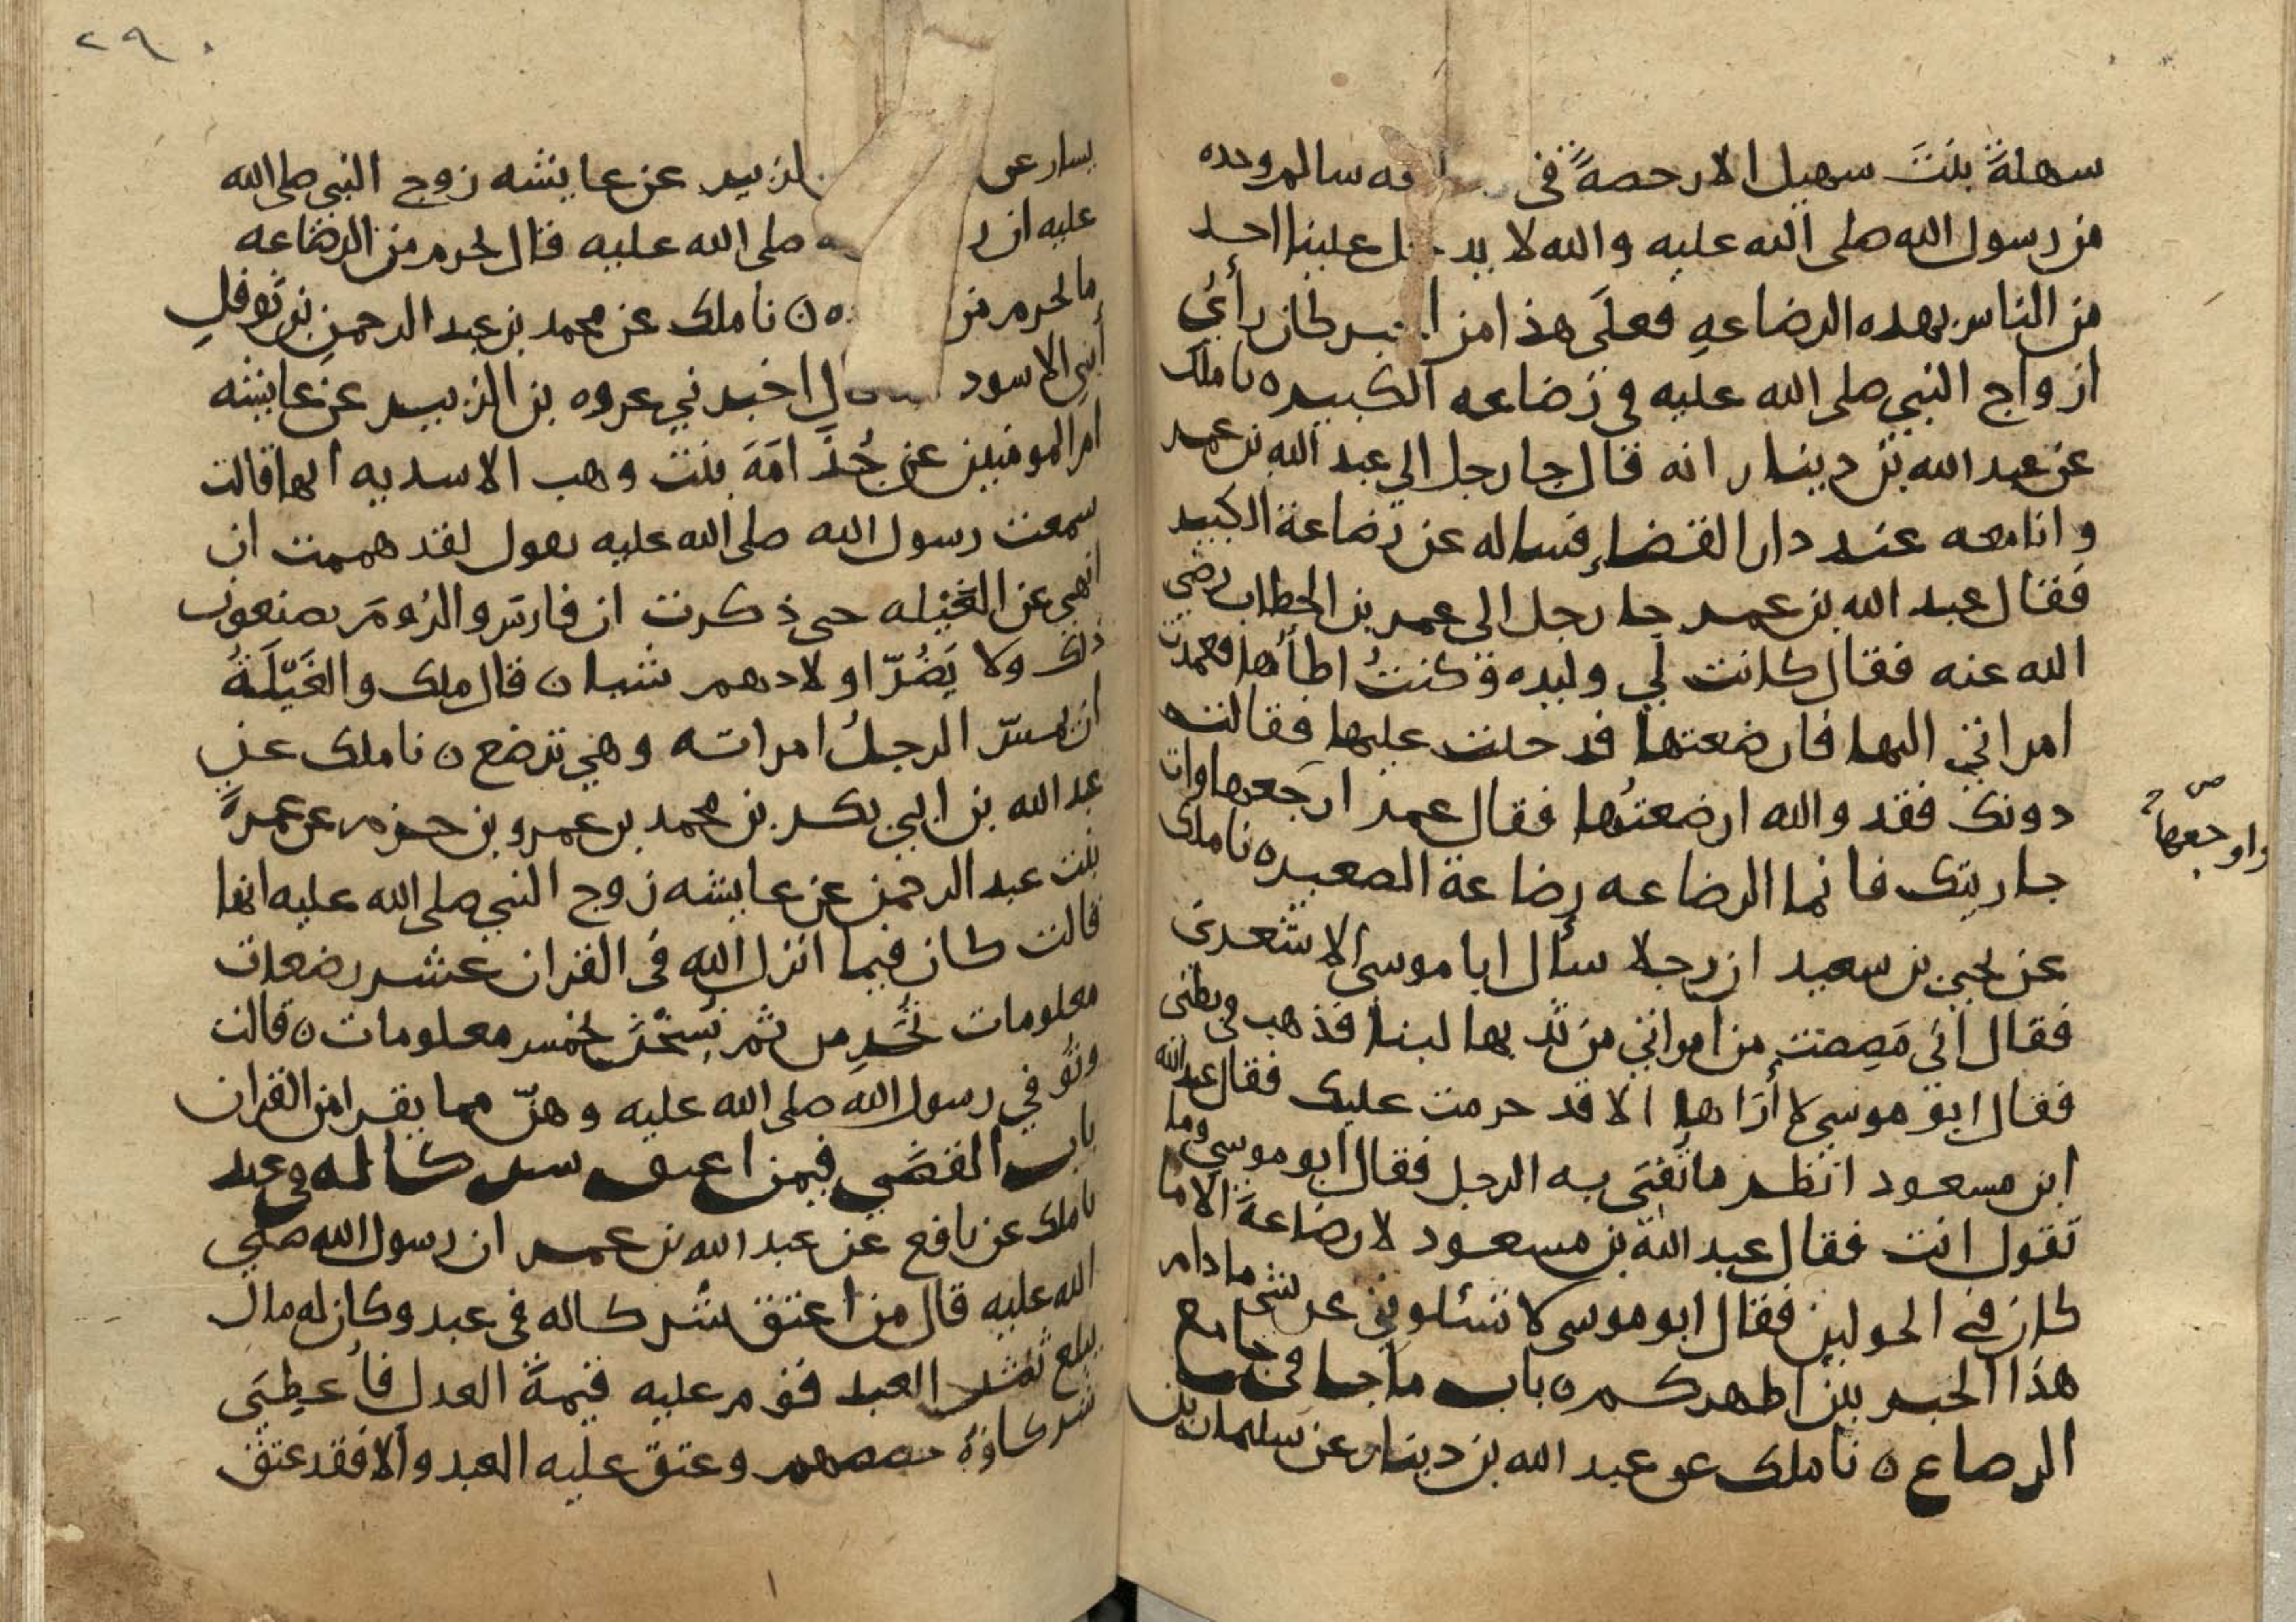 سهلةَ بنتَ سهيل الا رخصةً في فه سالم وحده
من رسول الله صلى الله عليه والله لا يدخل علينا احد
من الناس بهذه الرضاعهِ فعلَى هذا من كان رأيُ
ازواج النبي صلى الله عليه في رَضاعه الكبير ه نا ملك
عن عبد الله بن دينار انه قال جا رجل الي عبد الله بن عمر
وانا معه عند دار القضاءِ فساله عن رَضاعة الكبير
فقال عبد الله بن عمر جا رجل الى عمر بن الخطاب رضي
الله عنه فقال كانت لي وليده وكنتُ اطأُها فعمدت
امراتي اليها فارضعتها فدخلت عليها فقالت
دونك فقد والله ارضعتُها فقال عمر ارجَعها وات
واوجعها
جاريتك فانما الرضاعه رضاعة الصغير ه نا ملك
عن يحيى بن سعيد ان رجلا سأل ابا موسى الاشعرىَ
فقال انّى مَصِصت من امراتي من ثديها لبنا فذهب في بطنى
فقال ابو موسي لا أُرَاها الا قد حرمت عليك فقال عبد الله
ابن مسعود انظر ما تُفتَى به الرجل فقال ابو موسي وما
تقول انت فقال عبد الله بن مسعود لا رضاعةَ الا ما
كان في الحولين فقال ابو موسى لا تسئلوني عن شي ما دام
هذا الحبر بين اظهركم ه باب ما جا في جامع
الرضاع ه نا ملك عن عبد الله بن دينار عن سليمان بن
٢٩٠
يسار عن الزبير عن عايشه زوج النبي صلى الله
عليه ان صلى الله عليه قال يحرم من الرضاعه
ما يحرم من ه نا ملك عن محمد بن عبد الرحمن بن نَوفلِ
أبي الاسود قال اخبرني عروه بن الزبير عن عايشه
ام المومنين عن جُدَامَةَ بنت وهب الاسديه انها قالت
سمعت رسول الله صلى الله عليه يقول لقد هممت ان
انهي عن الغَيْله حتى ذكرت ان فارسَ والرُومَ يصنعون
ذلك ولا يَضُرّ اولادهم شيا ه قال ملك والغَيْلَةُ
ان يمسّ الرجلُ امراته وهي ترضع ه نا ملك عن
عبد الله بن ابي بكر بن محمد بن عمرو بن حزم عن عمرةَ
بنت عبد الرحمن عن عايشه زوج النبي صلى الله عليه انها
قالت كان فيما انزل الله في القران عشر رضعات
معلومات يُحَرِمن ثم نُسِخْنَ بخمس معلومات ه قالت
وتُوفي رسول الله صلى الله عليه وهنّ مما يقرا من القران
باب القضَي فيمن اعتق شركا له في عبد
نا ملك عن نافع عن عبد الله بن عمر ان رسول الله صلي
الله عليه قال من اعتق شركا له في عبد وكان له مال
يبلغ ثمن العبد قوم عليه قيمةَ العدل فأُعطِىَ
شركاوهُ حصصهم وعتق عليه العبد والا فقد عتق